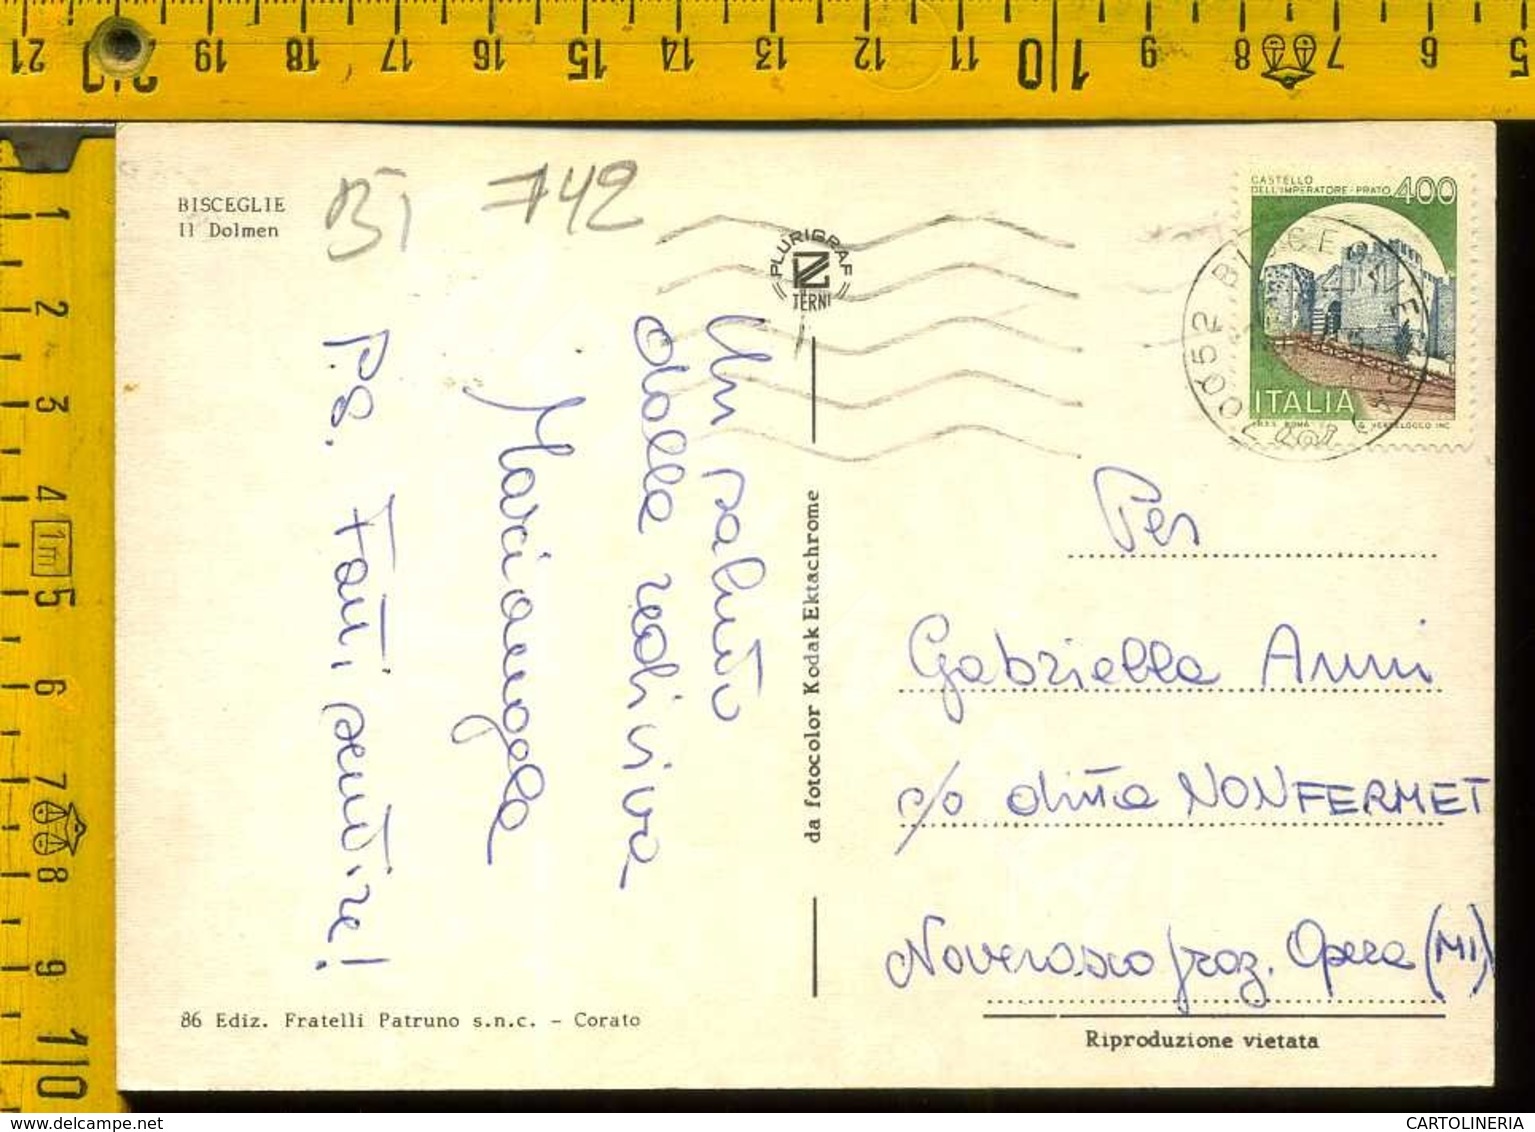 BISCEGLIE
Il Dolmen
BT 742
PLURIGRAF
TERNI
CASTELLO
DELL'IMPERATORE - PRATO 400
ITALIA
70052 BISCEGLIE
Un saluto
dalla rediviva
Mariangela
P.S. Fatti sentire!
da fotocolor Kodak Ektachrome
Per
Gabriella Anni
c/o ditta NONFERMET
Noverasco fraz. Opera (MI)
86 Ediz. Fratelli Patruno s.n.c. - Corato
Riproduzione vietata
21 20 19 18 17 16 15 14 13 12 11 10 9 8 7 6 5
1 2 3 4 1m 5 6 7 8 9 10
www.delcampe.net
CARTOLINERIA